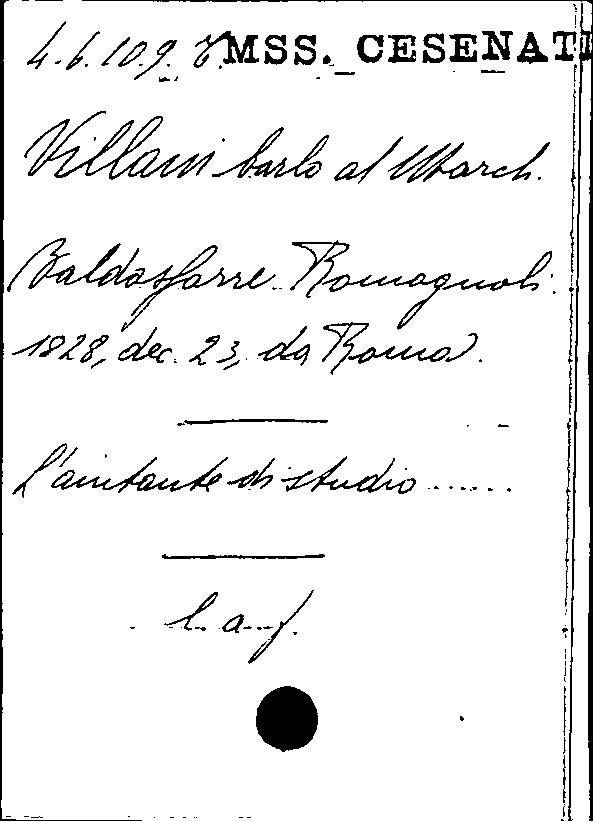 4.6.109. MSS. CESENATI
Villani Carlo al March.
Baldassarre Romagnoli.
1828, dec. 23, da Roma.
L'aiutante di studio ......
l. a. f.